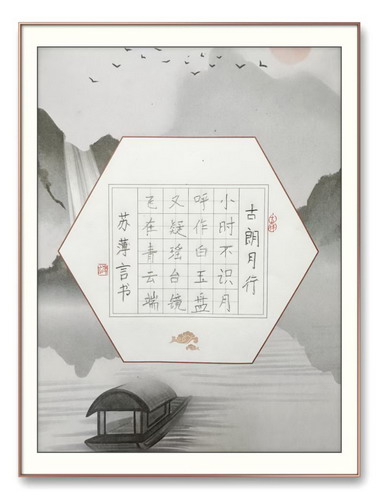 古朗月行
小时不识月
呼作白玉盘
又疑瑶台镜
飞在青云端
苏薄言书